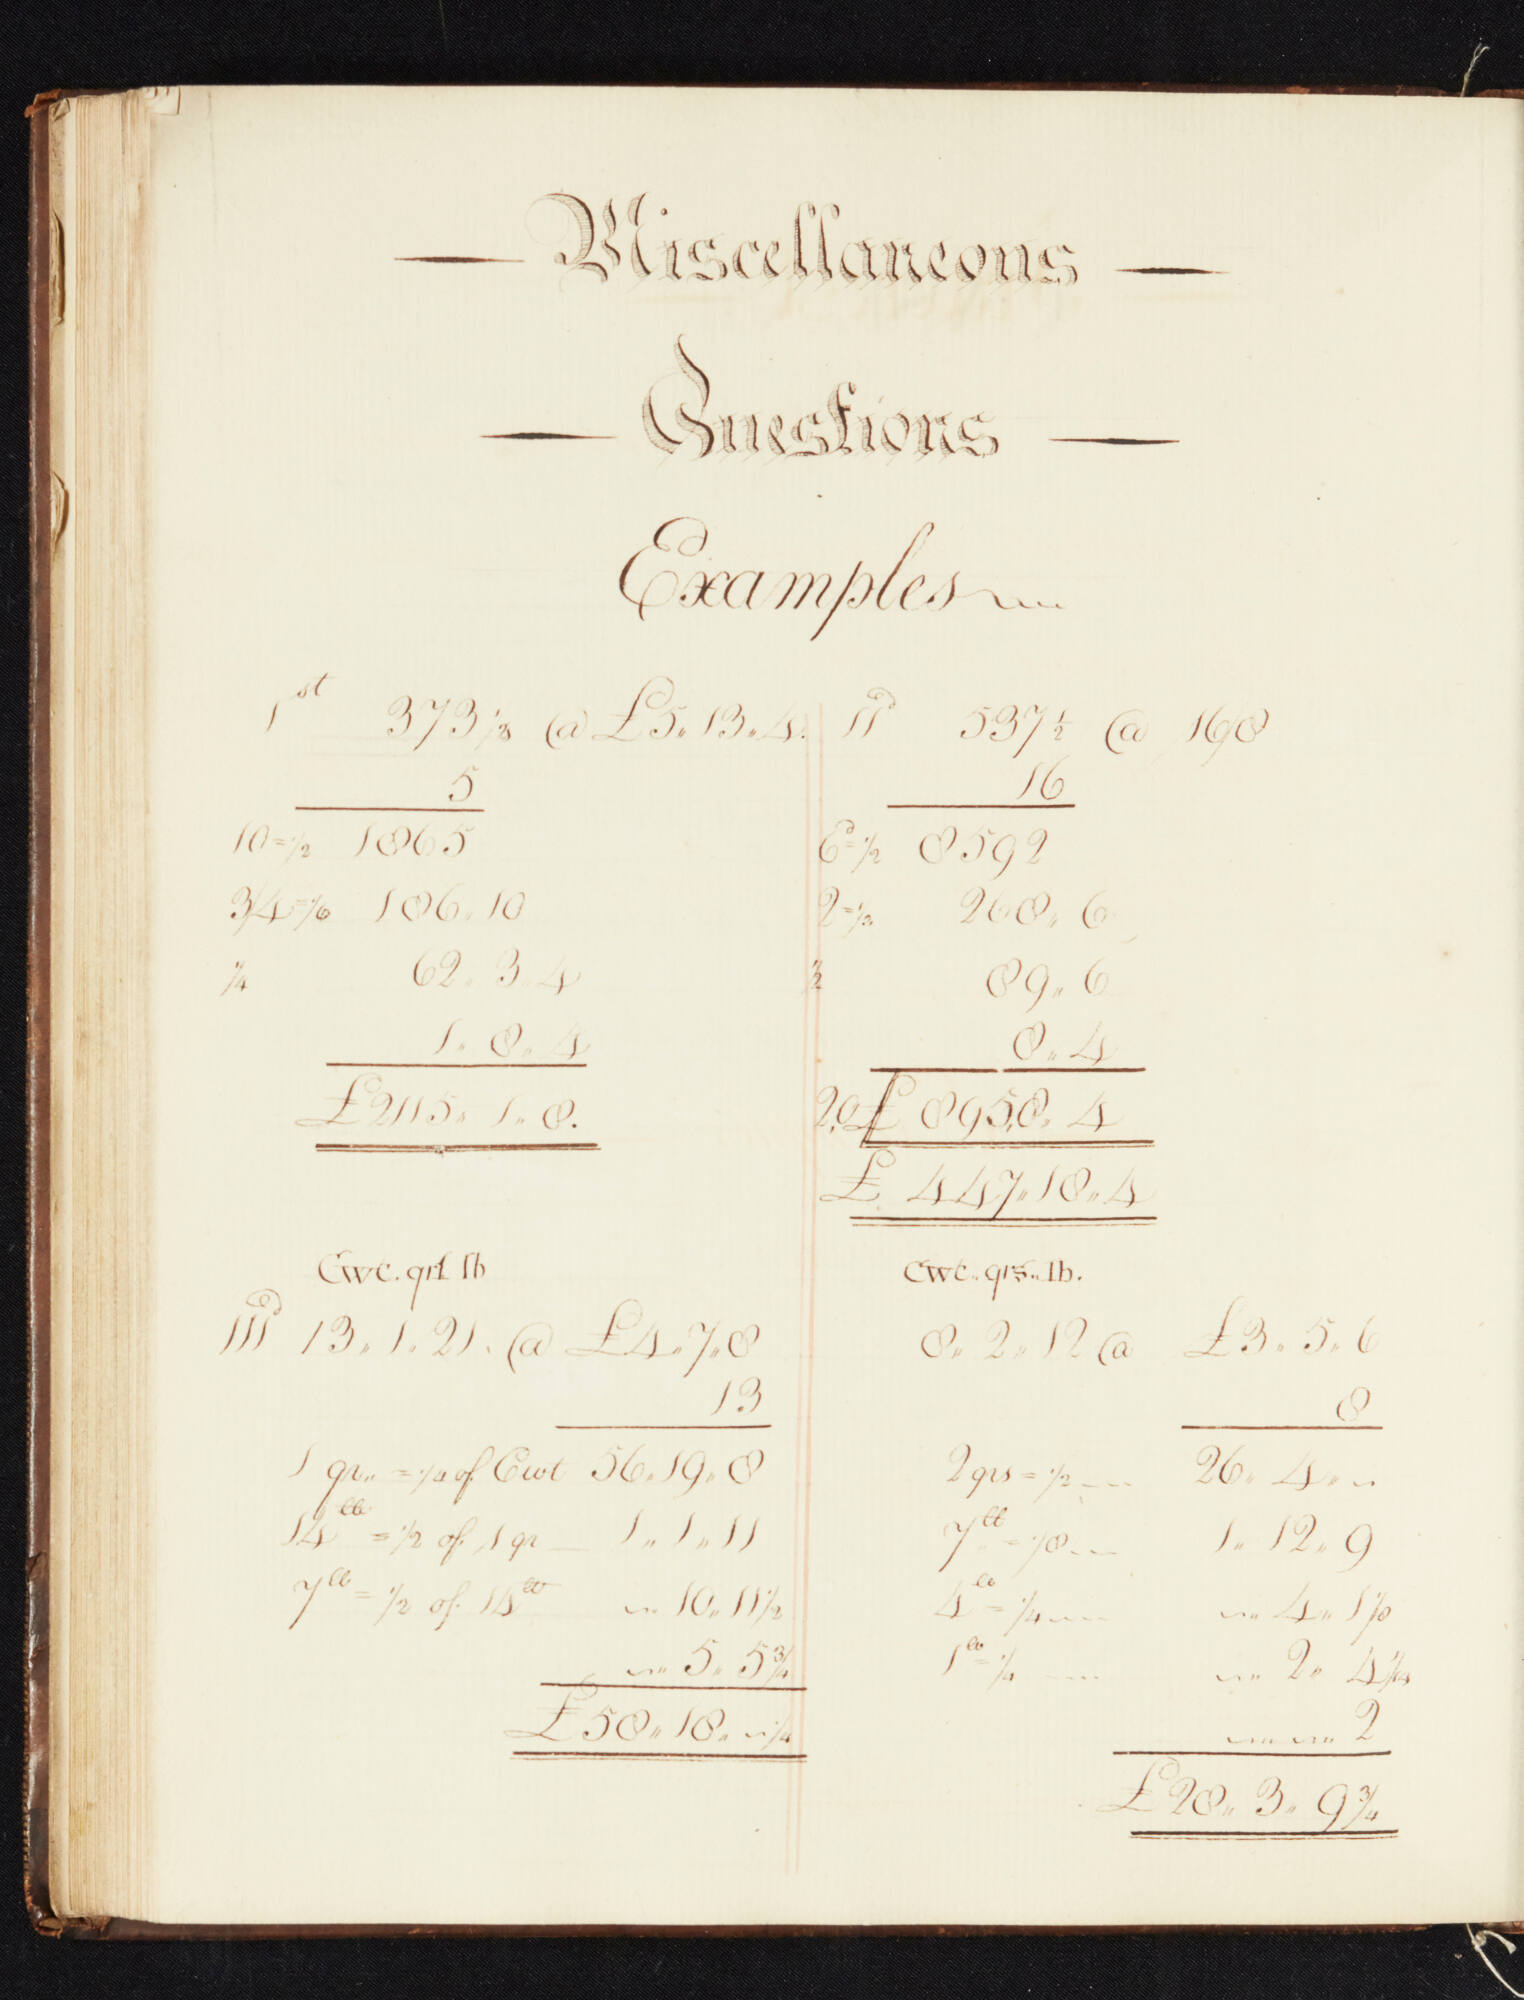 Miscellaneous
Questions
Examples
1st 373 1/3 @ £5„13„4.
5
10=1/2 1865
3/4=1/6 186„10
1/4 62„3„4
1„8„4
£2115„1„8.
IId 537 1/2 @ 16/8
16
6d=1/2 8592
2=1/3 268„6
1/2 89„6
8„4
2,0 £ 895,8„4
£ 447„18„4
Cwt. qrs lb
IIId 13„1„21. @ £4„7„8
13
1 qr„ = 1/4 of Cwt 56„19„8
14lb = 1/2 of 1 qr 1„1„11
7lb = 1/2 of 14lb „10„11 1/2
„5„5 3/4
£58„18„ 1/4
Cwt„qrs„lb.
8„2„12 @ £3„5„6
8
2qrs = 1/2 26„4„
7lb = 1/8 1„12„9
4lb = 1/4 „4„1 1/8
1lb = 1/4 „2„4 1/4
„„2
£28„3„9 3/4